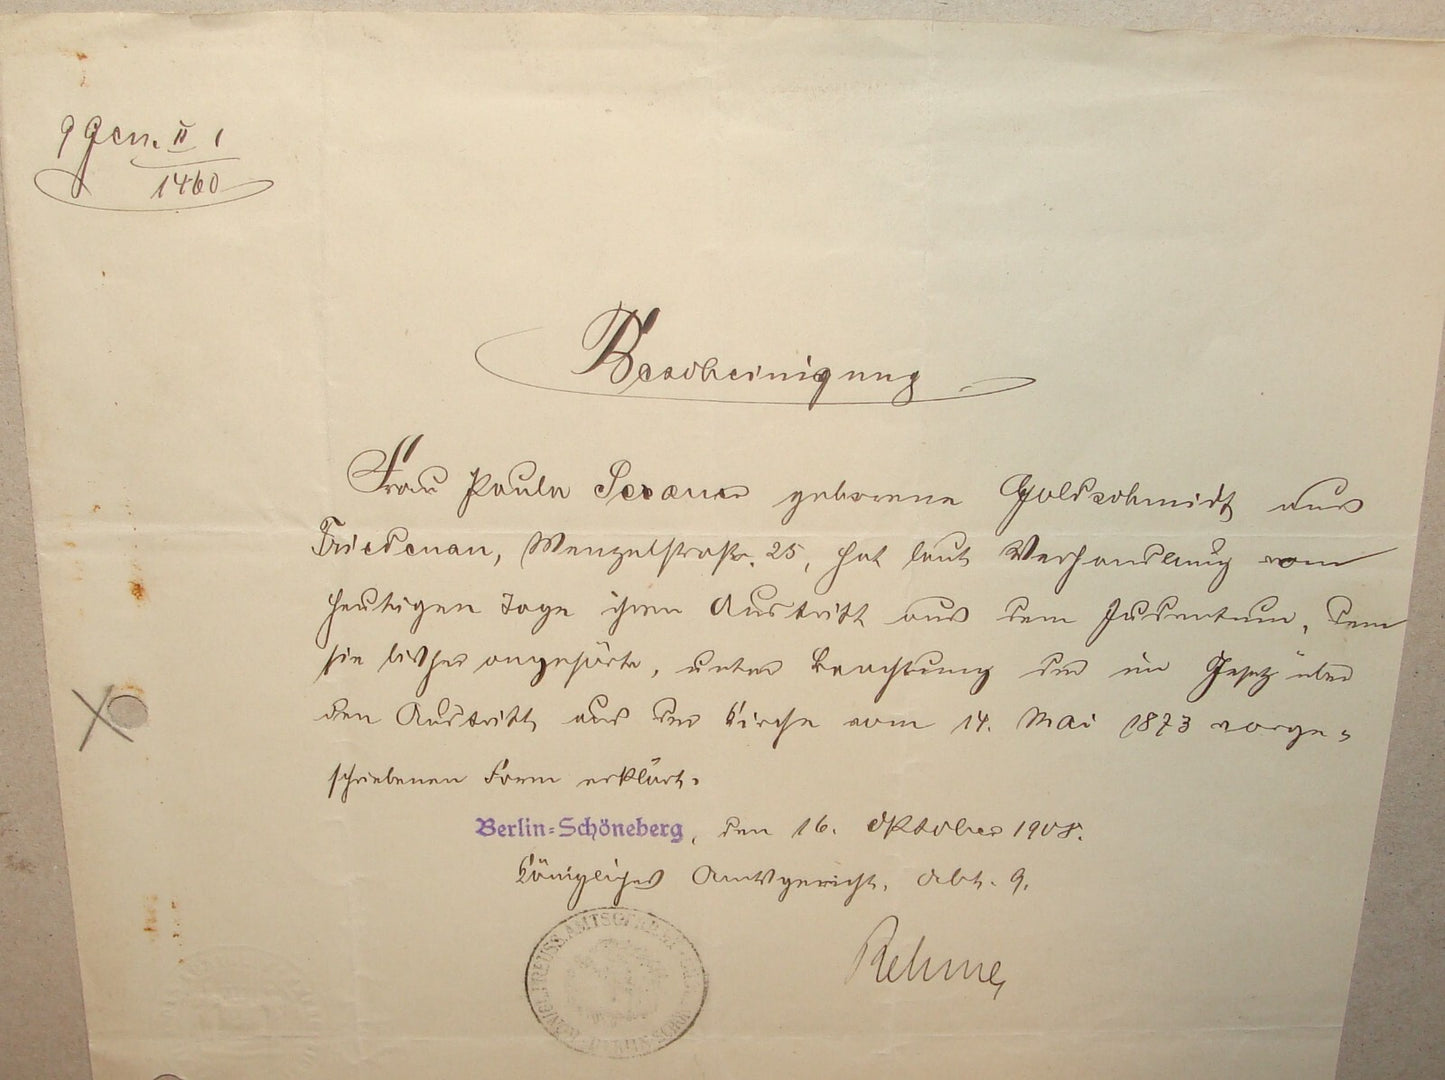 9 Gen. II 1
1460
Bescheinigung
Frau Paula geborene Goldschmidt aus
Friedenau, Menzelstraße. 25, hat laut Verhandlung vom
heutigen Tage ihren Austritt aus dem Judentum, dem
sie bisher angehörte, unter Beachtung der im Gesetz über
den Austritt aus der Kirche vom 14. Mai 1873 vorge=
schriebenen Form erklärt.
Berlin=Schöneberg, den 16. Oktober 1908.
Königliches Amtsgericht, Abt. 9.
Rehme
KÖNIGL. PREUSS. AMTSGERICHT BERLIN-SCHÖNEBERG